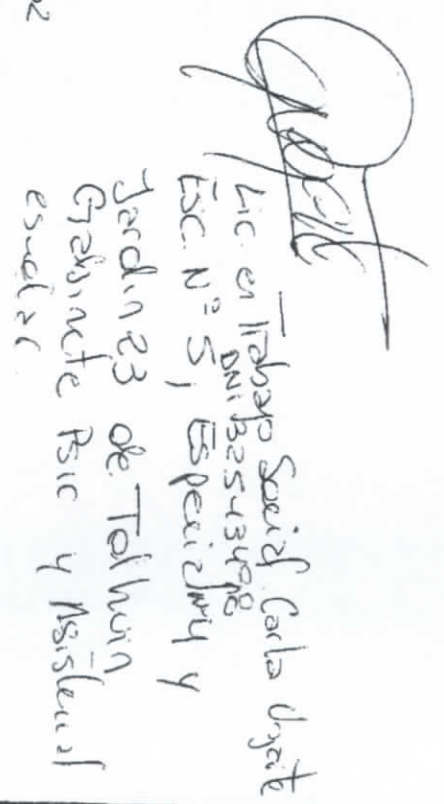 Lic. en Trabajo Social Carla Ugarte
DNI 32543408
Esc. N° 5, Especial N°4 y
Jardin 23 de Tolhuin
Gabinete Psic y Asistencial
escolar